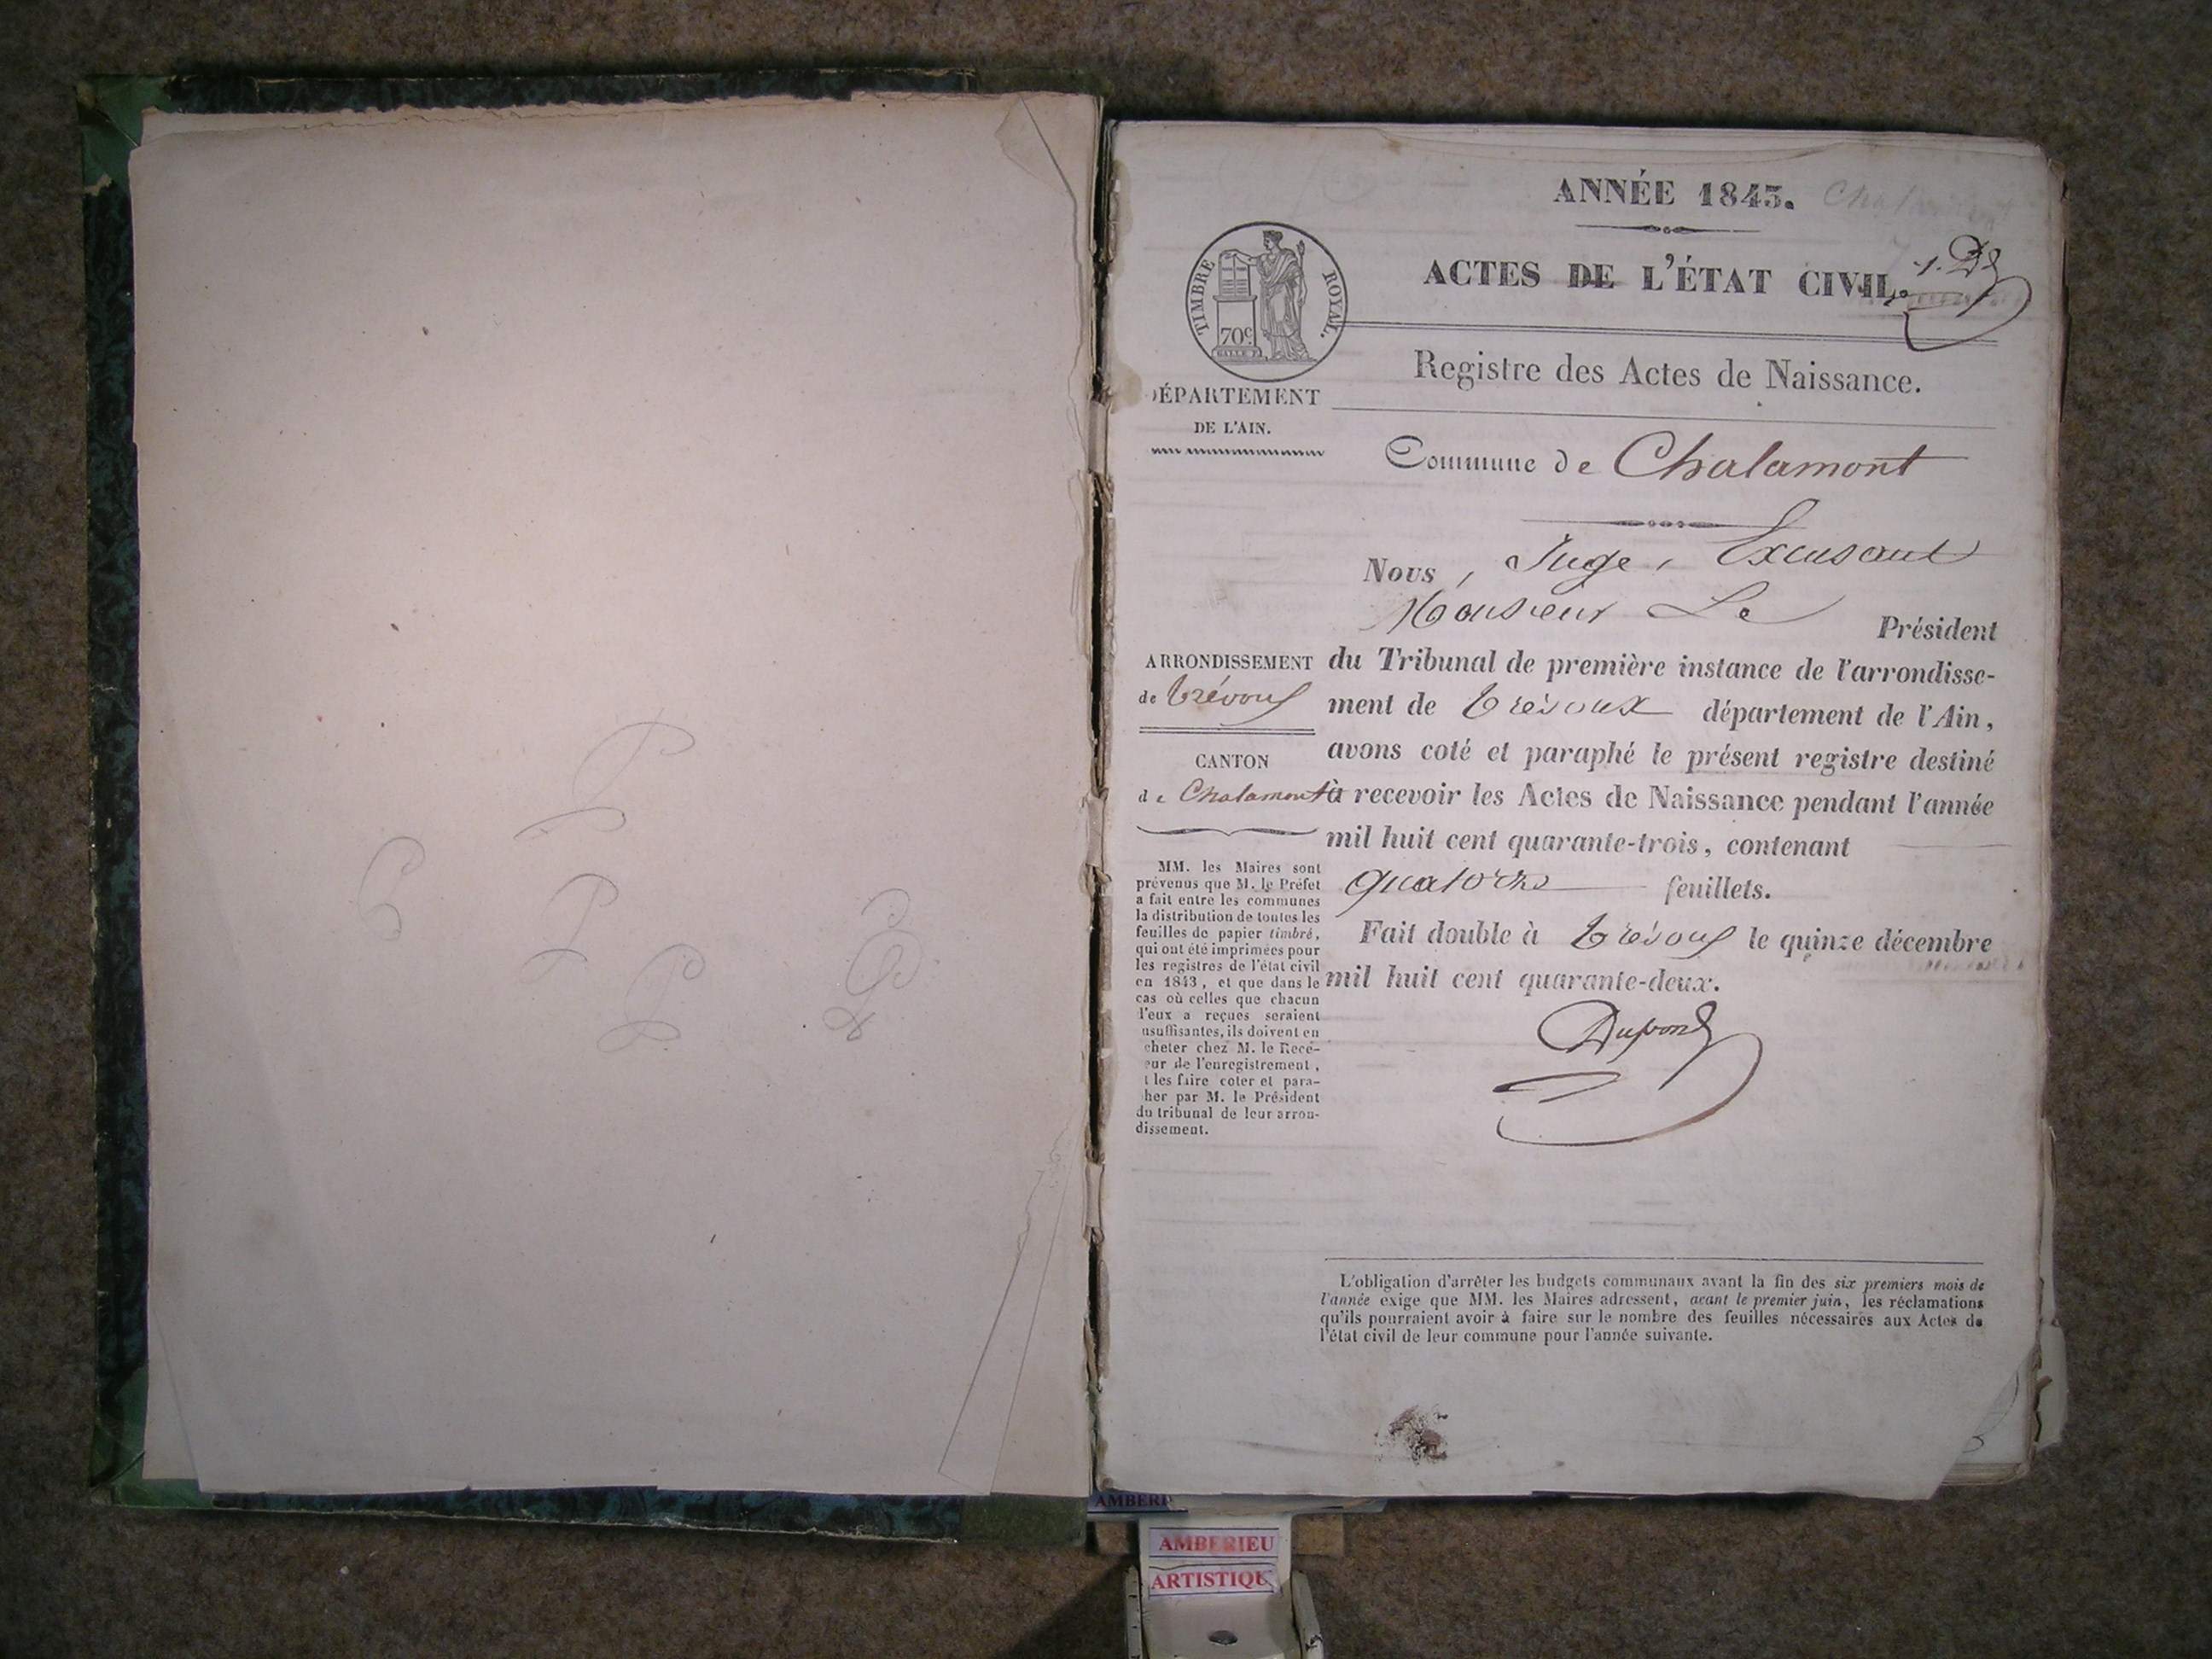 ANNÉE 1843. Chalamont
ACTES DE L'ÉTAT CIVIL.
TIMBRE ROYAL.
70c
Registre des Actes de Naissance.
DÉPARTEMENT
DE L'AIN.
Commune de Chalamont
Nous, Juge, Excusant
Monsieur Le Président
du Tribunal de première instance de l'arrondisse-
ment de Trévoux département de l'Ain,
avons coté et paraphé le présent registre destiné
à recevoir les Actes de Naissance pendant l'année
mil huit cent quarante-trois, contenant
quatorze feuillets.
Fait double à Trévoux le quinze décembre
mil huit cent quarante-deux.
Dupond
ARRONDISSEMENT
de Trévoux
CANTON
de Chalamont
MM. les Maires sont
prévenus que M. le Préfet
a fait entre les communes
la distribution de toutes les
feuilles de papier timbré,
qui ont été imprimées pour
les registres de l'état civil
en 1843, et que dans le
cas où celles que chacun
l'eux a reçues seraient
nsuffisantes, ils doivent en
cheter chez M. le Rece-
eur de l'enregistrement,
t les faire coter et para-
her par M. le Président
du tribunal de leur arron-
dissement.
L'obligation d'arrêter les budgets communaux avant la fin des six premiers mois de
l'année exige que MM. les Maires adressent, avant le premier juin, les réclamations
qu'ils pourraient avoir à faire sur le nombre des feuilles nécessaires aux Actes de
l'état civil de leur commune pour l'année suivante.
AMBERI
AMBERIEU
ARTISTIQU